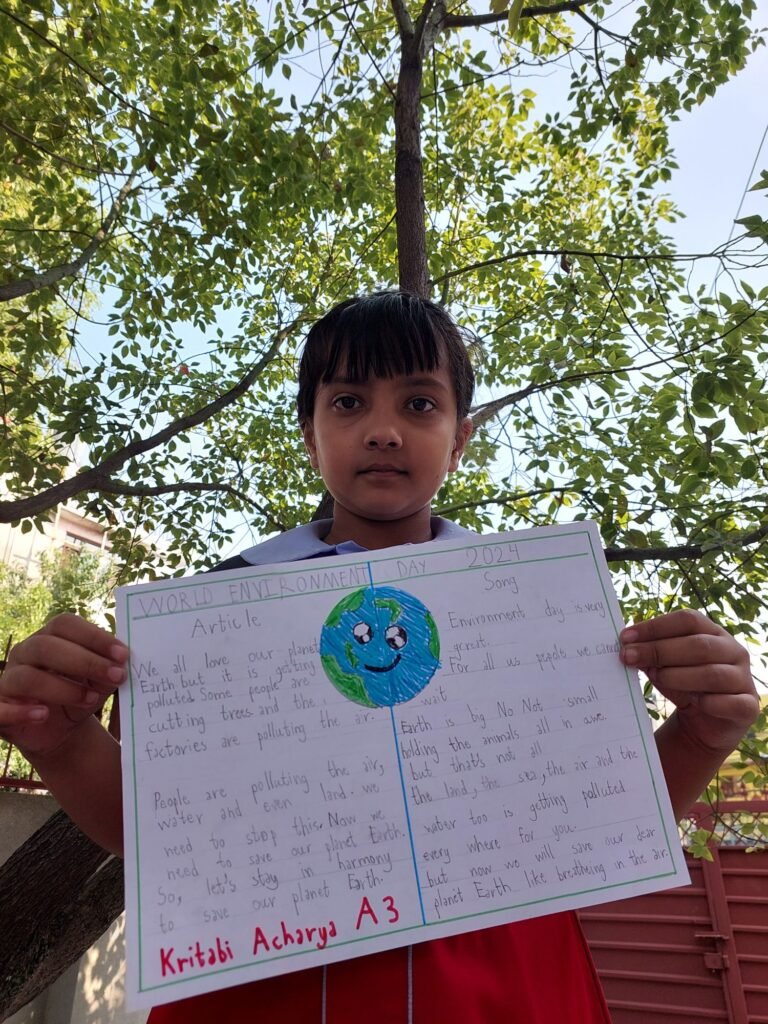 WORLD ENVIRONMENT DAY 2024
Article
We all love our planet
Earth but it is getting
polluted. Some people are
cutting trees and the
factories are polluting the air.
People are polluting the air,
water and even land. we
need to stop this. Now we
need to save our planet Earth.
So, let's stay in harmony
to save our planet Earth.
Kritabi Acharya A3
Song
Environment day is very
great.
For all us people we cannot
wait
Earth is big No Not small
holding the animals all in awe.
but that's not all
the land, the sea, the air and the
water too is getting polluted
every where for you.
but now we will save our dear
planet Earth like breatheing in the air.